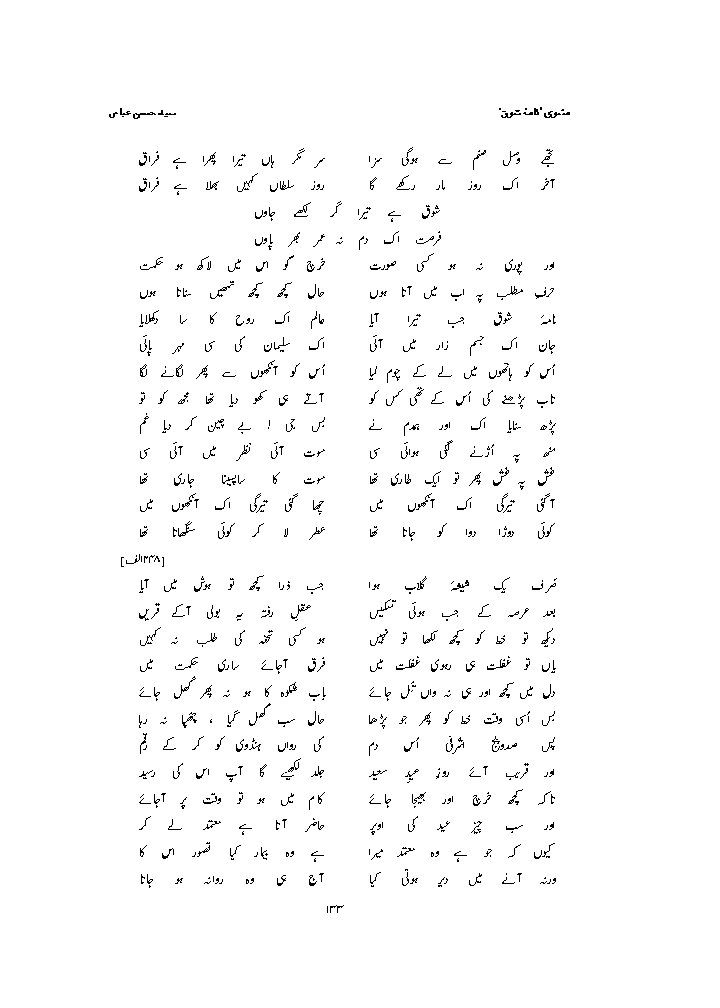 مثنوی 'نامۂ شوق' سید حسن عباس
تجھے وصل صنم سے ہوگی سزا سر مگر ہاں تیرا پھرا ہے فراق
آخر اک روز مار رکھے گا روز سلطاں کہیں بھلا ہے فراق
شوق ہے تیرا گر لکھے جاوں
فرصت اک دم نہ عمر بھر پاوں
اور پوری نہ ہو کسی صورت خرچ گو اس میں لاکھ ہو حکمت
حرفِ مطلب پہ اب میں آتا ہوں حال کچھ کچھ تمھیں سناتا ہوں
نامۂ شوق جب تیرا آیا عالم اک روح کا سا دکھلایا
جان اک جسم زار میں آئی اک سلیمان کی سی مہر پائی
اُس کو ہاتھوں میں لے کے چوم لیا اُس کو آنکھوں سے پھر لگانے لگا
تاب پڑھنے کی اُس کے تھی کس کو آتے ہی کھو دیا تھا مجھ کو تو
پڑھ سنایا اک اور ہمدم نے بس جی ا بے چین کر دیا غم
منھ پہ اُڑنے لگی ہوائی سی موت آئی نظر میں آئی سی
غش پہ غش پھر تو ایک طاری تھا موت کا ساپسینا جاری تھا
آگئی تیرگی اک آنکھوں میں چھا گئی تیرگی اک آنکھوں میں
کوئی دوڑا دوا کو جاتا تھا عطر لا کر کوئی سنگھاتا تھا
[۱۲۴۸الف]
صَرف یک شیشۂ گلاب ہوا جب ذرا کچھ تو ہوش میں آیا
بعد عرصہ کے جب ہوئی تسکیں عقلِ رفتہ یہ بولی آکے قریں
دیکھ تو خط کو کچھ لکھا تو نہیں ہو کسی تحفہ کی طلب نہ کہیں
یاں تو غفلت ہی رہوی غفلت میں فرق آجائے ساری حکمت میں
دل میں کچھ اور ہی نہ واں تُل جائے باب شکوہ کا ہو نہ پھر کُھل جائے
بس اُسی وقت خط کو پھر جو پڑھا حال سب کُھل گیا ، چھپا نہ رہا
پس صدوپنج اشرفی اُس دم کی رواں ہنڈوی کو کر کے رقم
اور قریب آئے روزِ عید سعید جلد لکھیے گا آپ اس کی رسید
تاکہ کچھ خرچ اور بھیجا جائے کام میں ہو تو وقت پر آجائے
اور سب چیز عید کی اوپر حاضر آتا ہے معتمد لے کر
کیوں کہ جو ہے وہ معتمد میرا ہے وہ بیمار کیا قصور اس کا
ورنہ آنے میں دیر ہوتی کیا آج ہی وہ روانہ ہو جاتا
۱۳۳